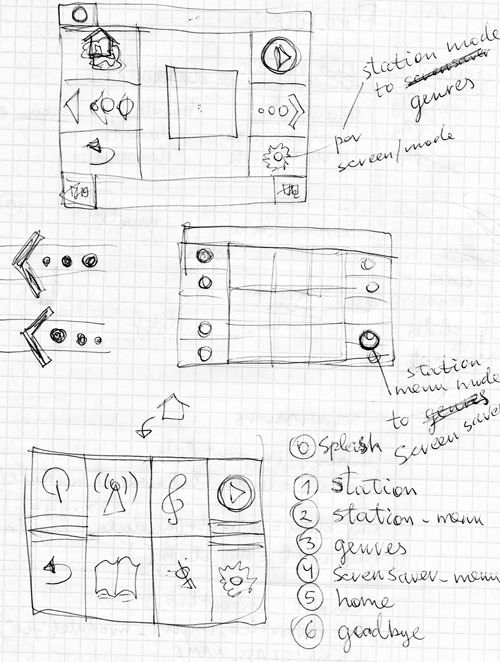 station mode
to screensaver
genres
screen/mode
station
menu mode
to genres
screen saver
0 Splash
1 station
2 station-menu
3 genres
4 screnSaver-menu
5 home
6 goodbye